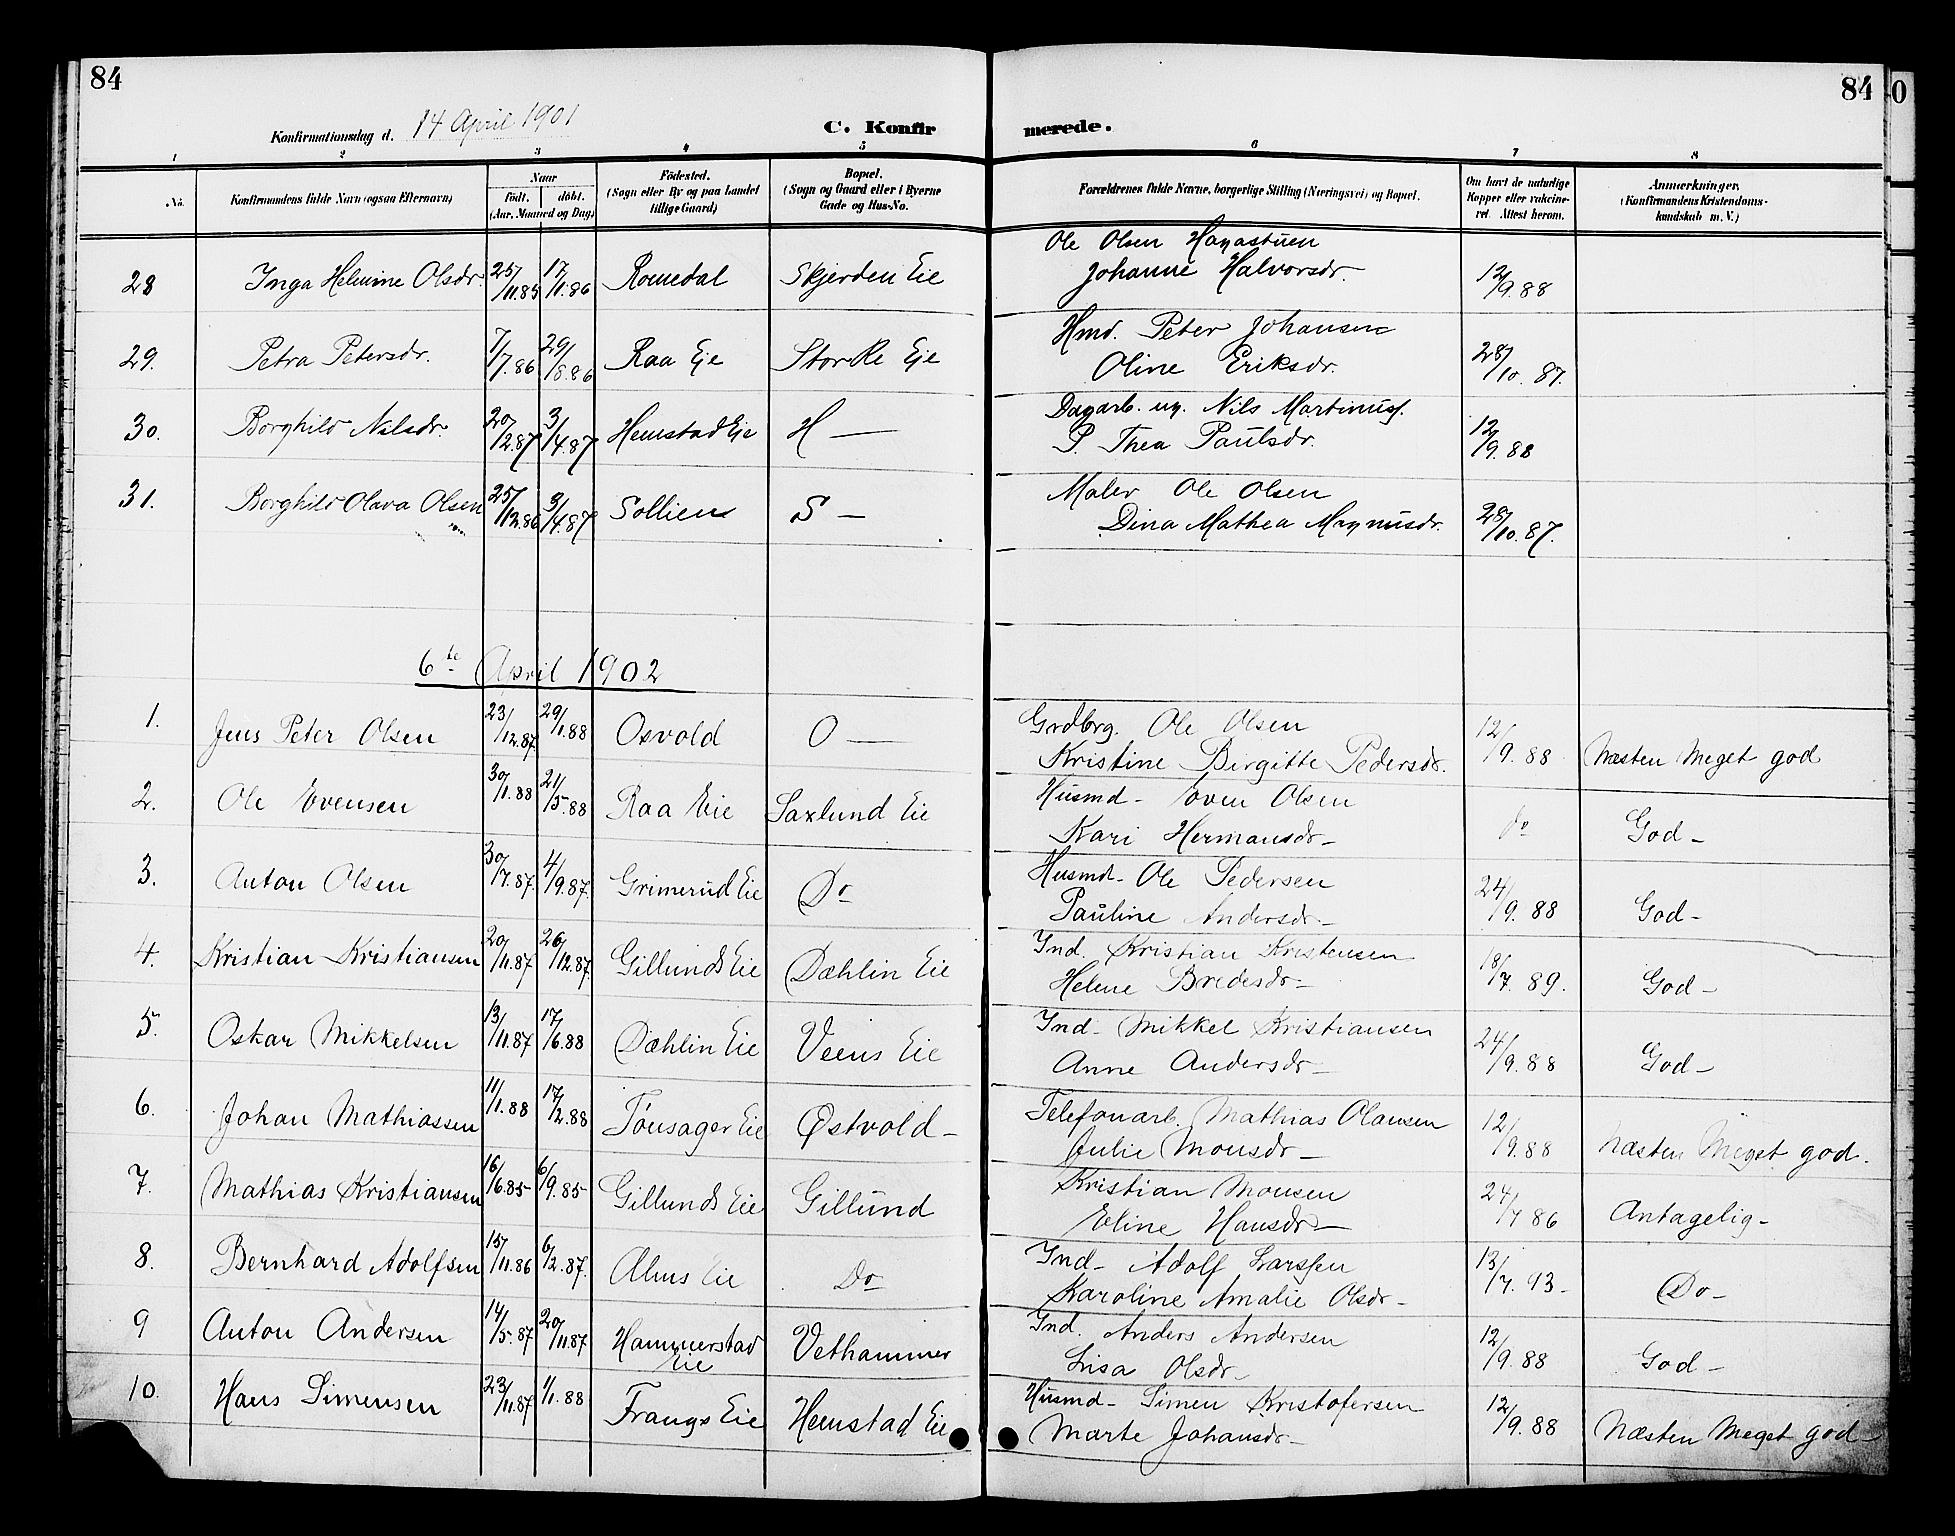 84
84
0
Konfirmationsdag d. 14 April 1901
C. Konfir
merede.
1 2 3 4 5 6 7 8
No. Konfirmandens fulde Navn (ogsaa Efternavn) Naar födt. döbt. (Aar, Maaned og Dag) Födested. (Sogn eller By og paa Landet tillige Gaard) Bopæl. (Sogn og Gaard eller i Byerne Gade og Hus-No. Forældrenes fulde Navne, borgerlige Stilling (Næringsvei) og Bopæl. Om havt de naturlige Kopper eller vakcineret. Attest herom. Anmærkninger. (Konfirmandens Kristendomskundskab m. V.)
Ole Olsen
28 Inga Helmine Olsdr. 25/11.85 17/1.86 Romedal Skjerden Eie Johanne Halvorsdr. 12/9.88
Hmd. Peter Johansen
29. Petra Petersdr. 7/7.86 29/8.86 Raa Eje StorRe Eje Oline Eriksdr. 28/10.87.
Dagarb. ug. Nils Martinusf.
30. Borghild Nilsdr. 20/2.87 3/4.87 Hemstad Eje H — P. Thea Paulsdr. 12/9.88
Maler Ole Olsen
31. Borghild Olava Olsen 25/12.86 3/4.87 Sollien S — Dina Mathea Magnusdr. 28/10.87.
6te April 1902
Grdbrg. Ole Olsen
1. Jens Peter Olsen 23/12.87 29/1.88 Osvold O — Kristine Birgitte Pedersdr. 12/9.88 Næsten Meget god
Husmd - Even Olsen
2. Ole Evensen 30/1.88 21/5.88 Raa Eie Saxlund Eie Kari Hermansdr - do God -
Husmd - Ole Pedersen
3. Anton Olsen 30/7.87. 4/9.87. Grimerud Eie Do Pauline Andersdr - 24/9.88 God -
Ind. Kristian Kristensen
4. Kristian Kristiansen 20/11.87 26/12.87. Gillunds Eie Dæhlin Eie Helene Bredesdr - 18/7.89. God -
Ind - Mikkel Kristiansen
5. Oskar Mikkelsen 13/11.87 17/6.88 Dæhlin Eie Veens Eie Anne Andersdr - 24/9.88 God -
Telefonarb. Mathias Olausen
6. Johan Mathiassen 11/1.88 17/2.88 Tönsager Eie Østvold - Julie Monsdr - 12/9.88 Næsten Meget god.
Kristian Monsen
7. Mathias Kristiansen 16/6.85 6/9.85 Gillunds Eie Gillund Eline Hansdr - 24/7 86 Antagelig -
Ind - Adolf Larsfen
8. Bernhard Adolfsen 15/11.86 6/2.87. Alms Eie Do Karoline Amalie Olsdr - 13/7.93 - Do -
Ind. Anders Andersen
9 Anton Andersen 14/5.87 20/11.87 Hammerstad Eie Vethammer Lisa Olsdr - 12/9.88 God -
Husmd - Simen Kristofersen
10. Hans Simensen 23/11.87 1/1.88 Frangs Eie Hemstad Eie Marte Johansdr - 12/9.88 Næsten Meget god -